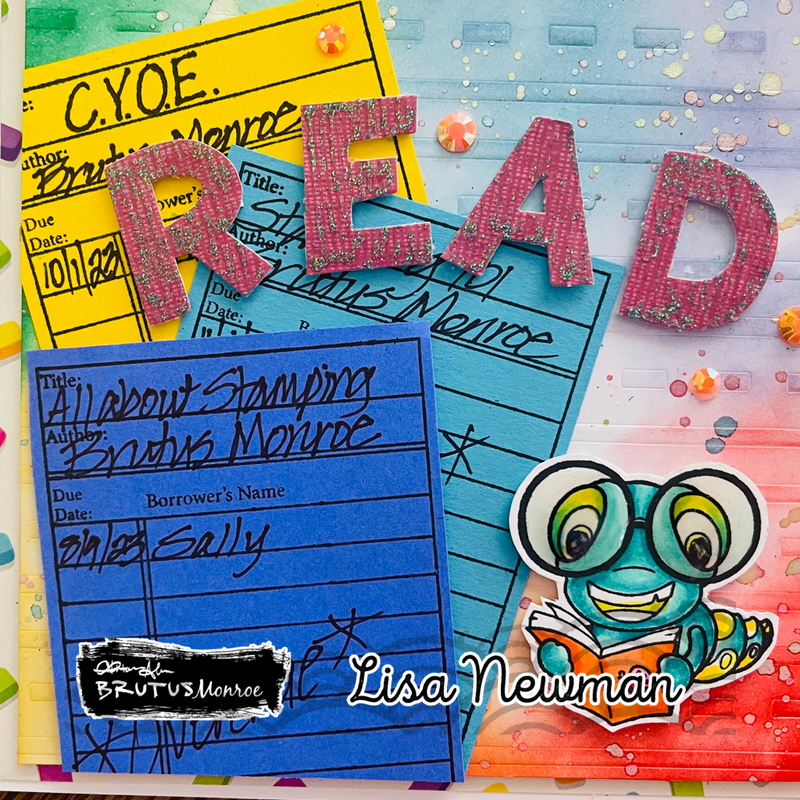 e:
C.Y.O.E.
uthor:
Brutus Monroe
ower's
Due
Date:
10/1/23
READ
Title:
Author:
Brutus Monroe
Due
Date:
Title:
All about Stamping
Author:
Brutus Monroe
Due
Date:
Borrower's Name
8/9/23 Sally
BRUTUS Monroe
Lisa Newman